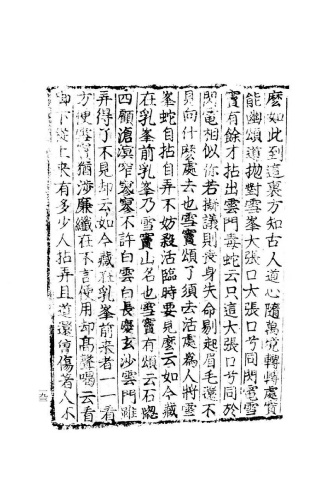 麽如此到這裏方知古人道心隨萬境轉轉處實
能幽頌道拋對雪峯大張口大張口兮同閃電雪
竇有餘才拈出雲門毒蛇云只這大張口兮同於
閃電相似你若擬議則喪身失命剔起眉毛還不
見向什麽處去也雪竇頌了須去活處為人將雪
峯蛇自拈自弄不妨殺活臨時要見麽云如今藏
在乳峯前乳峯乃雪竇山名也雪竇有頌云石緫
四顧滄溟窄寥寥不許白雲白長慶玄沙雲門雖
弄得了不見却云如今藏在乳峯前來者一一看
方便雪竇猶涉廉纖在不言便用却高聲喝云看
脚下從上來有多少人拈弄且道還曾傷著人不